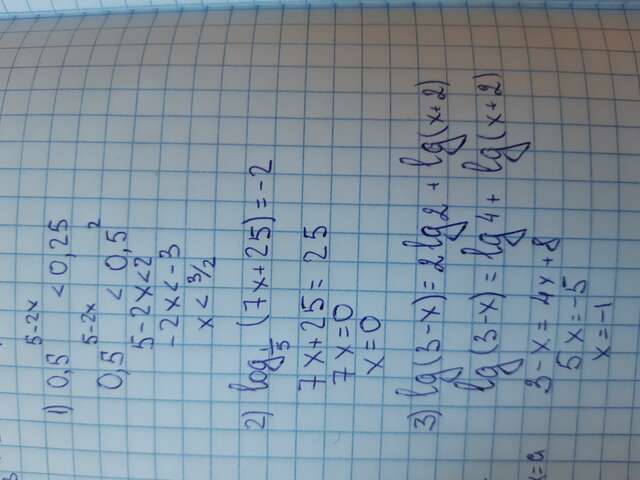 1) 0,5^(5-2x) < 0,25
0,5^(5-2x) < 0,5^2
5-2x<2
-2x<-3
x<3/2
2) log_(1/5) (7x+25)=-2
7x+25=25
7x=0
x=0
3) lg(3-x)=2lg2+lg(x+2)
lg(3-x)=lg4+lg(x+2)
3-x=4x+8
5x=-5
x=-1